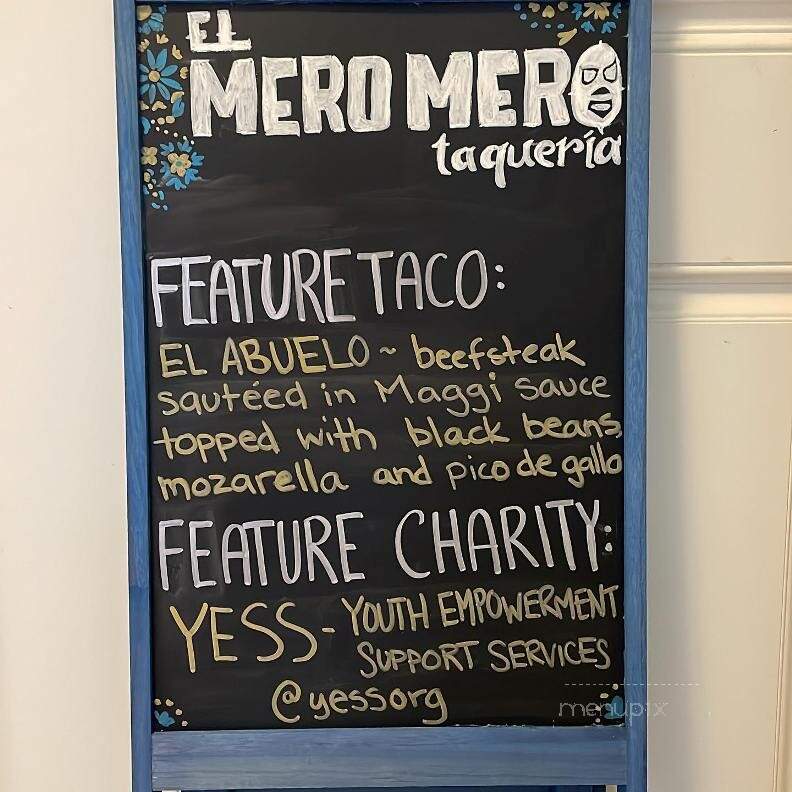 EL
MERO MERO
taquería
FEATURE TACO:
EL ABUELO ~ beefsteak
sautéed in Maggi sauce
topped with black beans,
mozarella and pico de gallo
FEATURE CHARITY:
YESS - YOUTH EMPOWERMENT
SUPPORT SERVICES
@yessorg
menupix